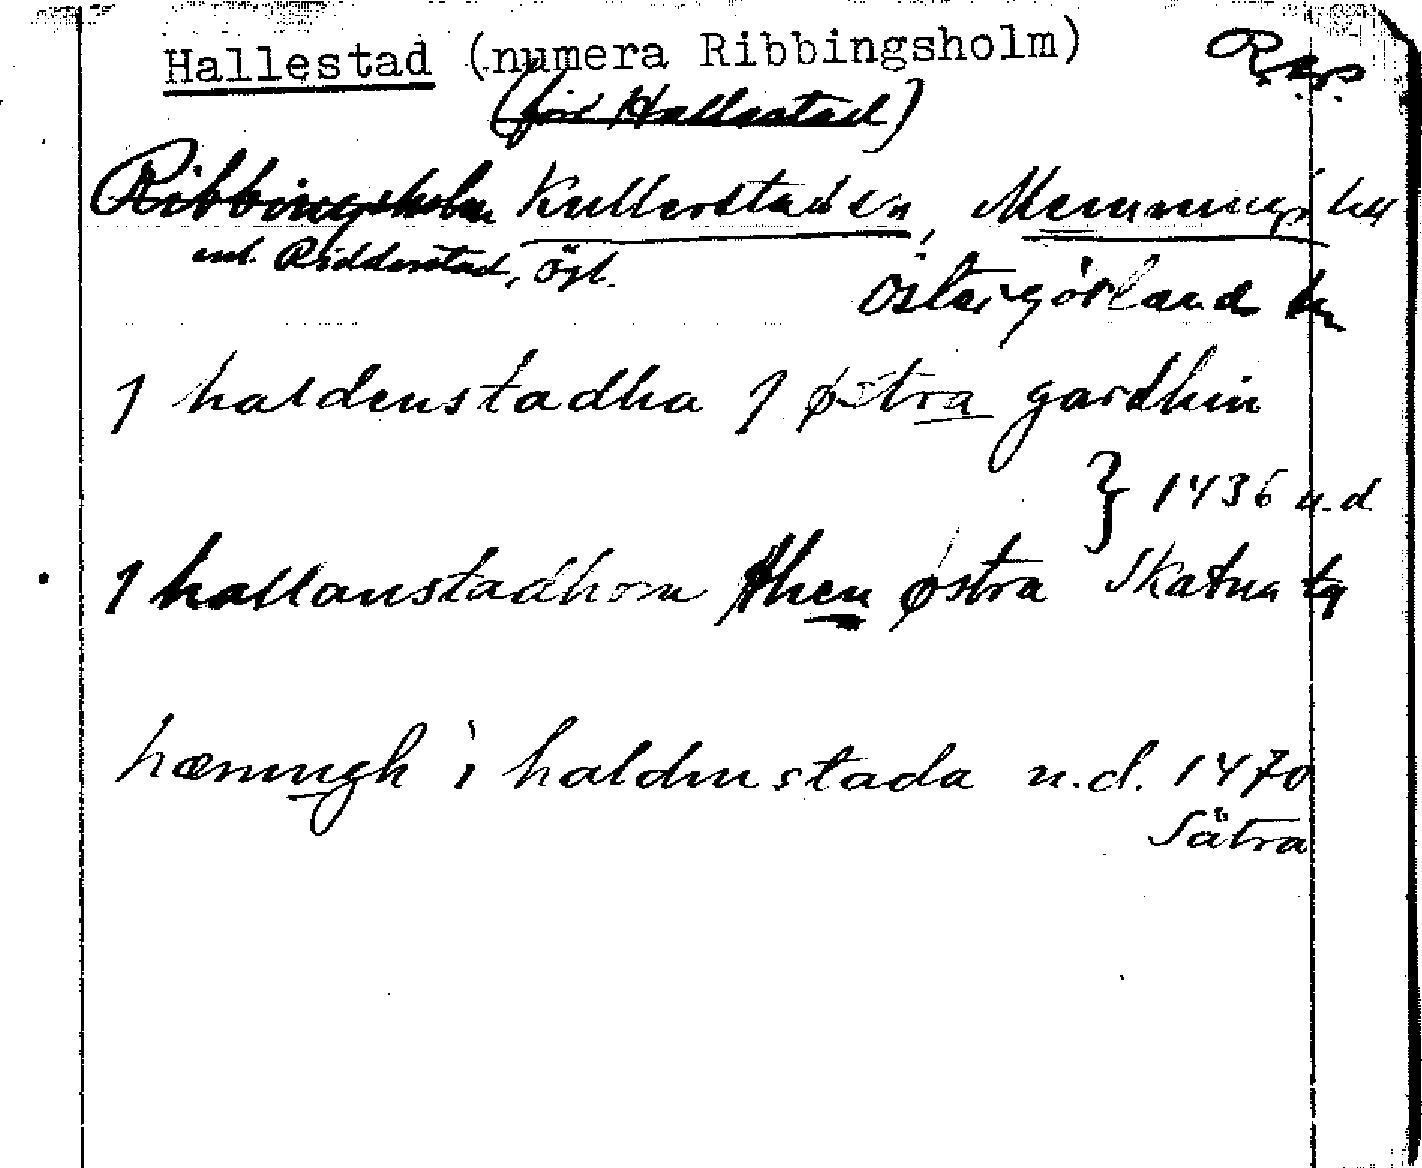 Hallestad (numera Ribbingsholm) R.ä.p.
(för Hallestad)
Ribbingsholm Kullerstads sn, Memmings hd
enl. Ridderstad, Ögl. Östergötland ln
J haldenstadha J østra gardhin
} 1436 u.d
J hallanstadhom then østra Skatna tg
hæningh i haldinstada u.d. 1470
Sätra